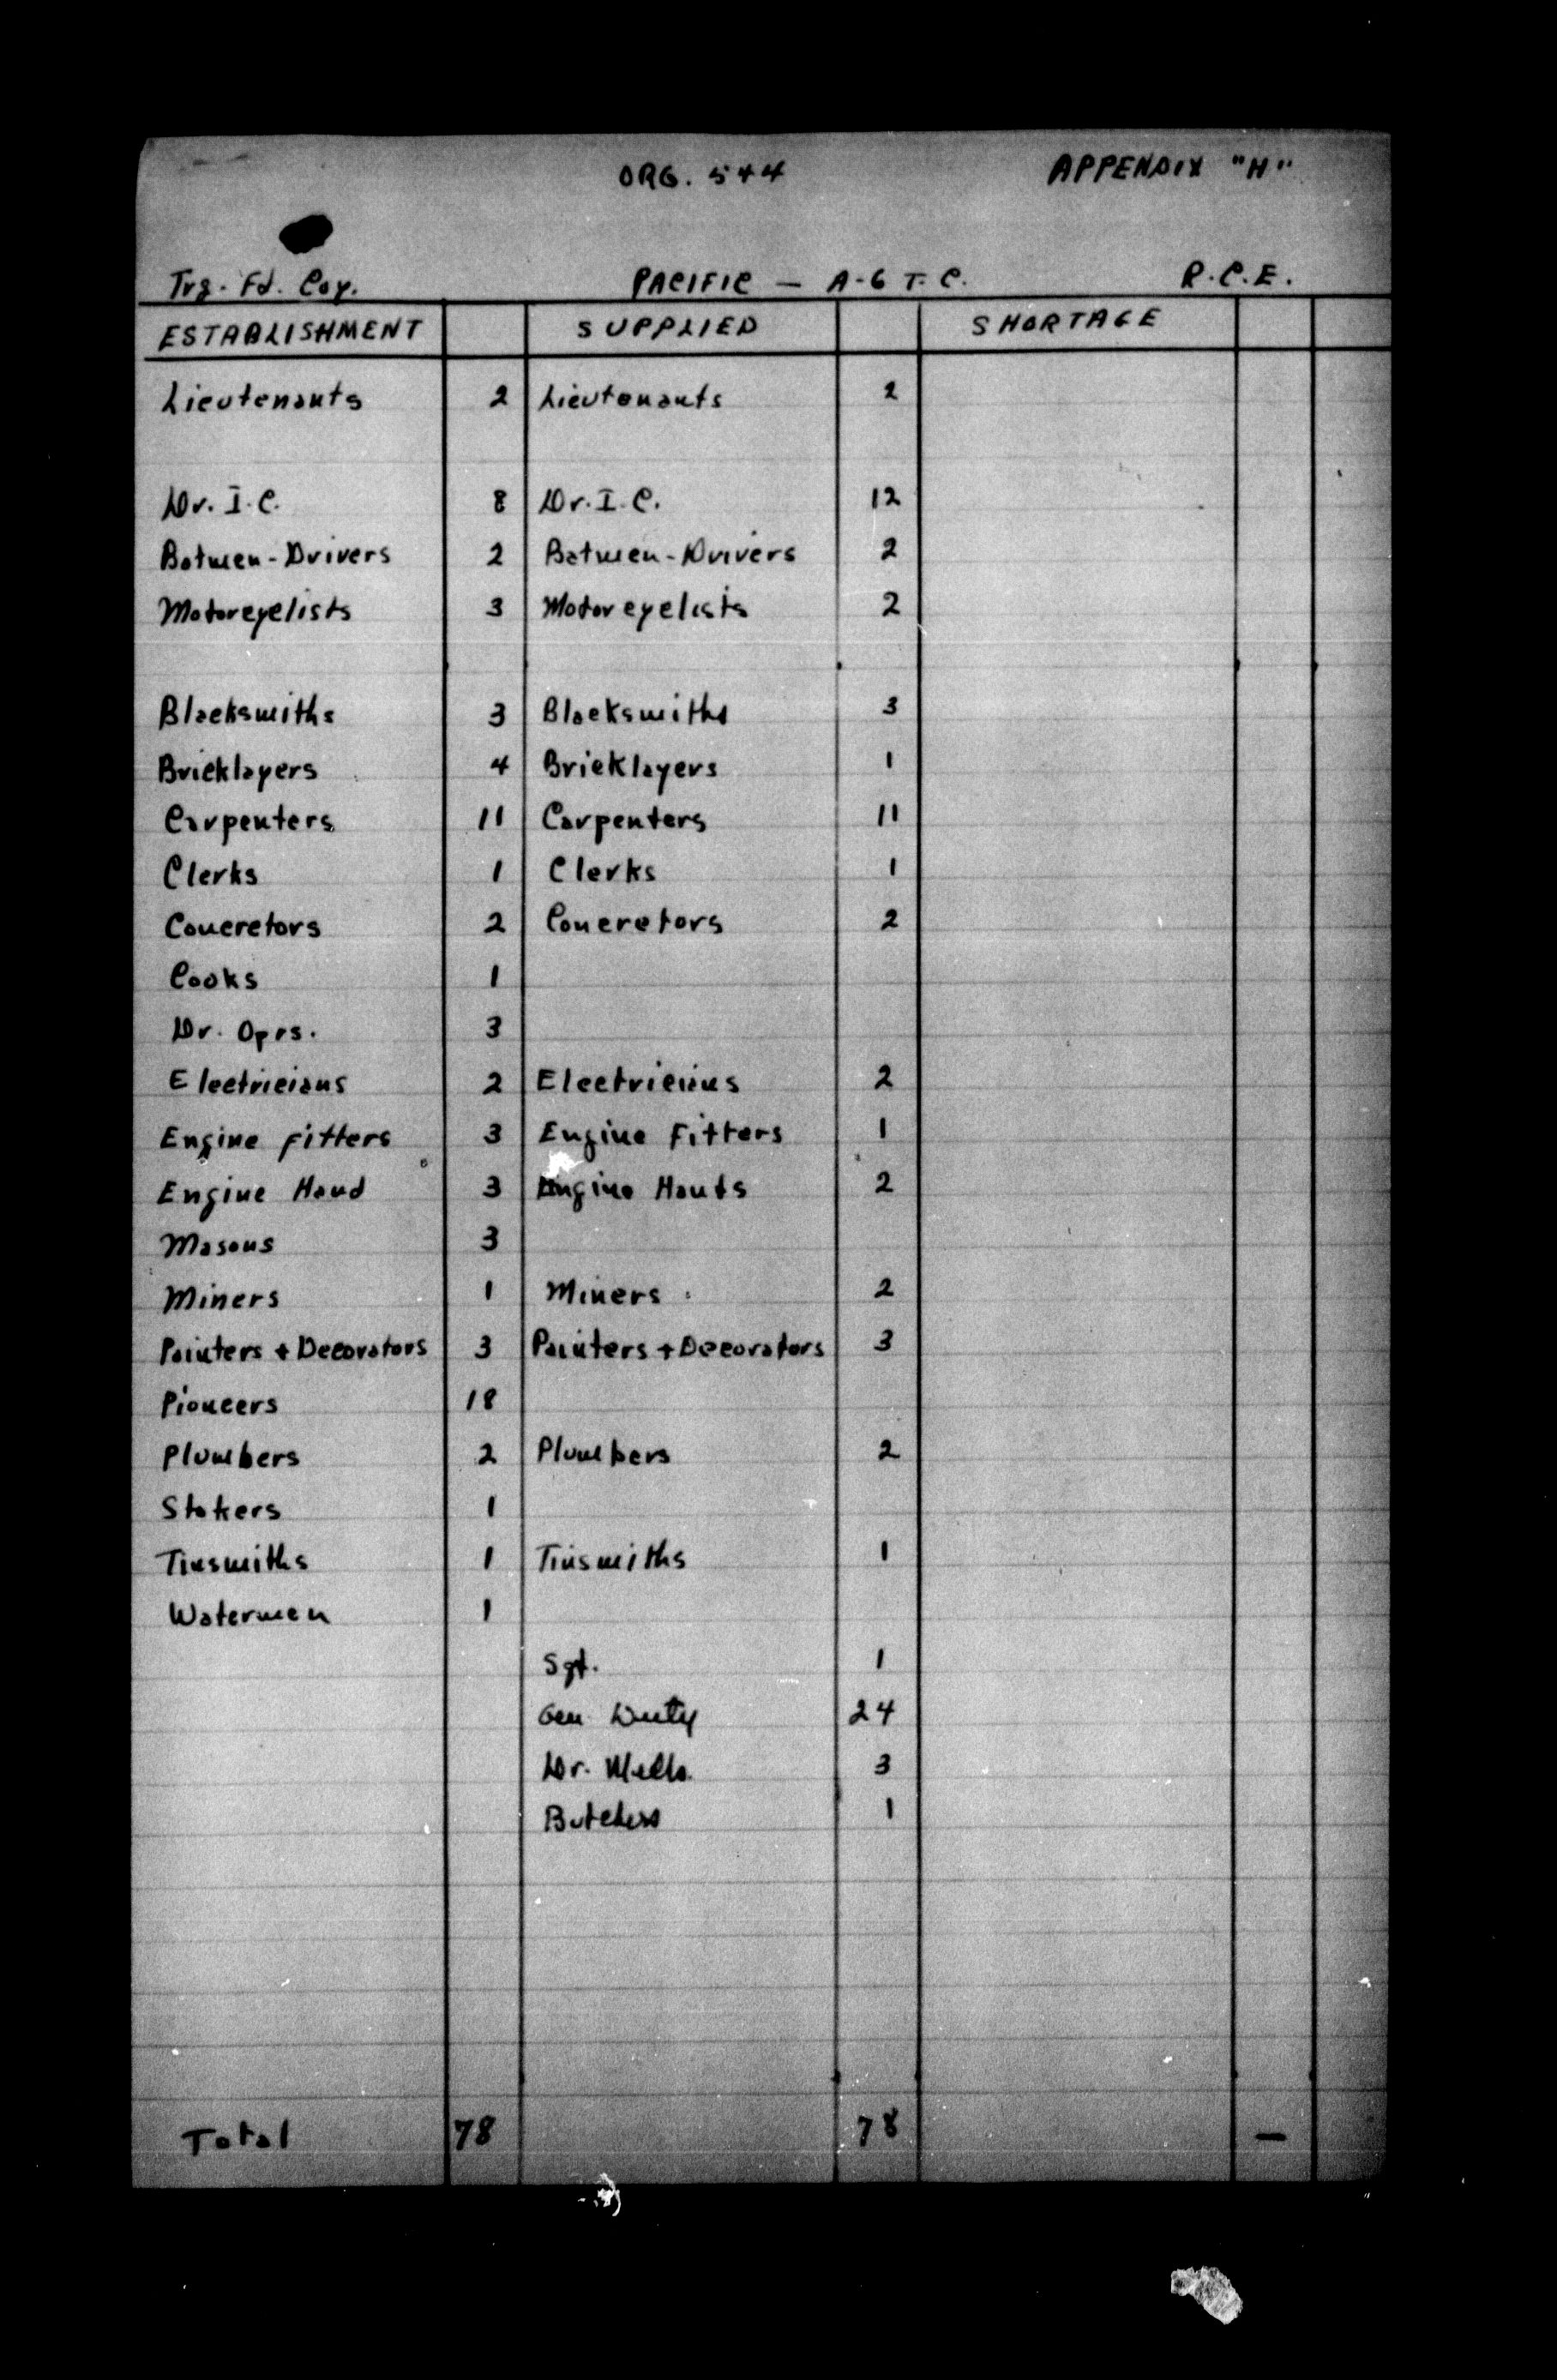 ORG. 544 APPENDIX "H"
Trg. Fd. Coy. PACIFIC — A-6 T. C. R.C.E.
ESTABLISHMENT SUPPLIED SHORTAGE
Lieutenants 2 Lieutenants 2
Dr. I.C. 8 Dr. I.C. 12
Batmen-Drivers 2 Batmen-Drivers 2
Motorcyclists 3 Motorcyclists 2
Blacksmiths 3 Blacksmiths 3
Bricklayers 4 Bricklayers 1
Carpenters 11 Carpenters 11
Clerks 1 Clerks 1
Concretors 2 Concretors 2
Cooks 1
Dr. Oprs. 3
Electricians 2 Electricians 2
Engine Fitters 3 Engine Fitters 1
Engine Hand 3 Engine Hants 2
Masons 3
Miners 1 Miners 2
Painters + Decorators 3 Painters + Decorators 3
Pioneers 18
Plumbers 2 Plumbers 2
Stokers 1
Tinsmiths 1 Tinsmiths 1
Watermen 1
Sgt. 1
Gen Duty 24
Dr. Mech. 3
Butchers 1
Total 78 78 —